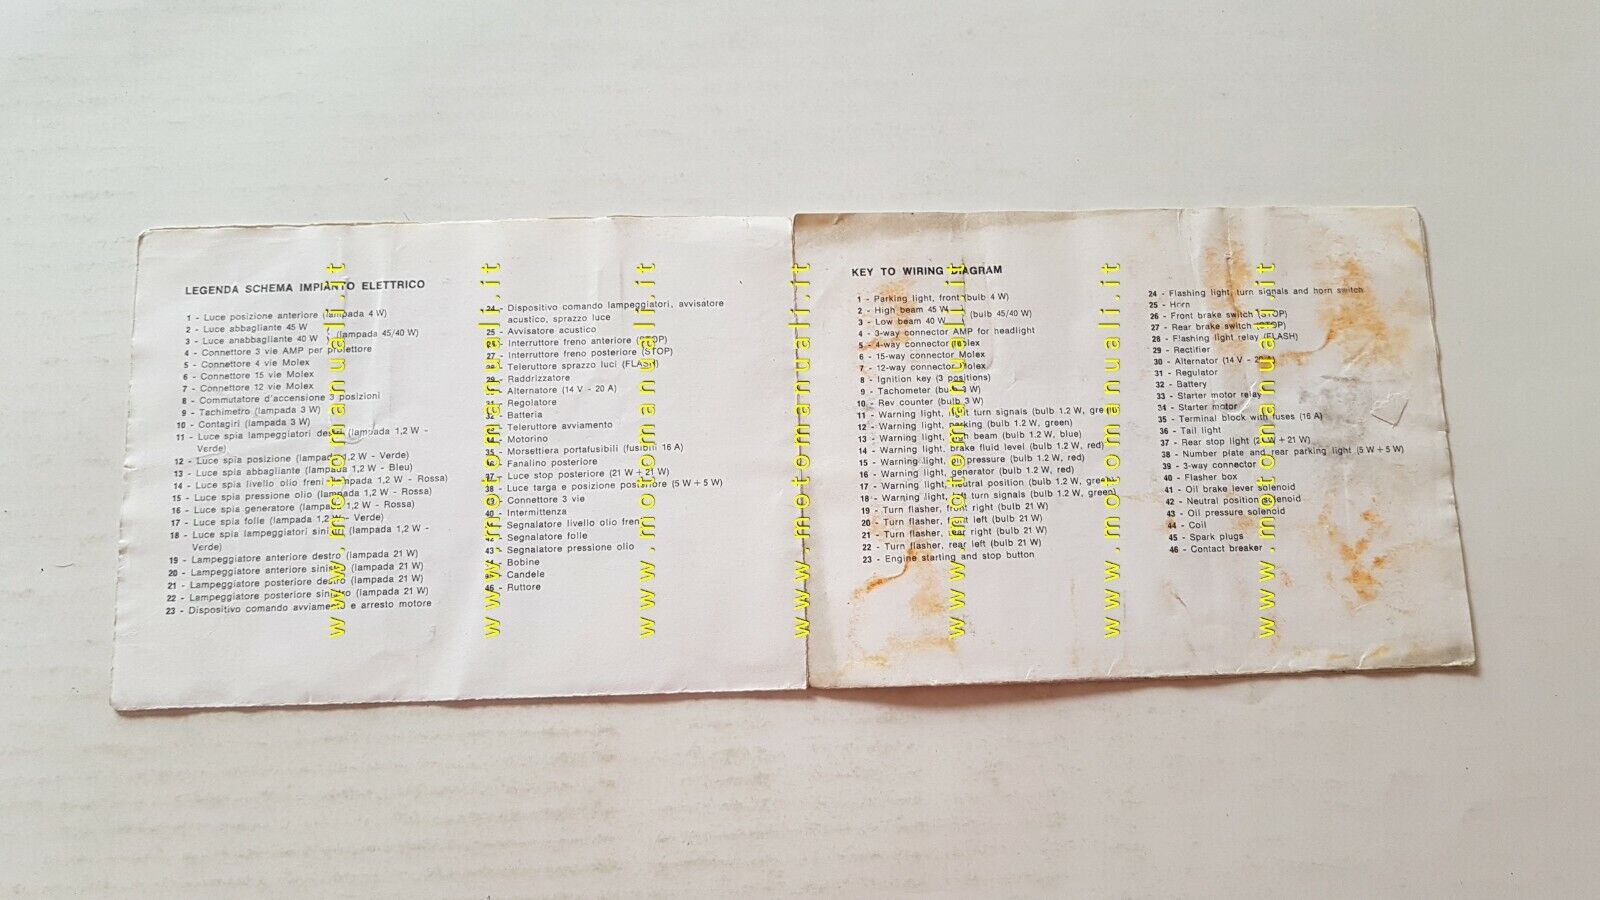 LEGENDA SCHEMA IMPIANTO ELETTRICO
1 - Luce posizione anteriore (lampada 4 W)
2 - Luce abbagliante 45 W
3 - Luce anabbagliante 40 W (lampada 45/40 W)
4 - Connettore 3 vie AMP per proiettore
5 - Connettore 4 vie Molex
6 - Connettore 15 vie Molex
7 - Connettore 12 vie Molex
8 - Commutatore d'accensione 3 posizioni
9 - Tachimetro (lampada 3 W)
10 - Contagiri (lampada 3 W)
11 - Luce spia lampeggiatori destri (lampada 1,2 W -
Verde)
12 - Luce spia posizione (lampada 1,2 W - Verde)
13 - Luce spia abbagliante (lampada 1,2 W - Bleu)
14 - Luce spia livello olio freni (lampada 1,2 W - Rossa)
15 - Luce spia pressione olio (lampada 1,2 W - Rossa)
16 - Luce spia generatore (lampada 1,2 W - Rossa)
17 - Luce spia folle (lampada 1,2 W - Verde)
18 - Luce spia lampeggiatori sinistri (lampada 1,2 W -
Verde)
19 - Lampeggiatore anteriore destro (lampada 21 W)
20 - Lampeggiatore anteriore sinistro (lampada 21 W)
21 - Lampeggiatore posteriore destro (lampada 21 W)
22 - Lampeggiatore posteriore sinistro (lampada 21 W)
23 - Dispositivo comando avviamento e arresto motore
24 - Dispositivo comando lampeggiatori, avvisatore
acustico, sprazzo luce
25 - Avvisatore acustico
26 - Interruttore freno anteriore (STOP)
27 - Interruttore freno posteriore (STOP)
28 - Teleruttore sprazzo luci (FLASH)
29 - Raddrizzatore
30 - Alternatore (14 V - 20 A)
31 - Regolatore
32 - Batteria
33 - Teleruttore avviamento
34 - Motorino
35 - Morsettiera portafusibili (fusibili 16 A)
36 - Fanalino posteriore
37 - Luce stop posteriore (21 W + 21 W)
38 - Luce targa e posizione posteriore (5 W + 5 W)
39 - Connettore 3 vie
40 - Intermittenza
41 - Segnalatore livello olio freni
42 - Segnalatore folle
43 - Segnalatore pressione olio
44 - Bobine
45 - Candele
46 - Ruttore
KEY TO WIRING DIAGRAM
1 - Parking light, front (bulb 4 W)
2 - High beam 45 W
3 - Low beam 40 W (bulb 45/40 W)
4 - 3-way connector AMP for headlight
5 - 4-way connector Molex
6 - 15-way connector Molex
7 - 12-way connector Molex
8 - Ignition key (3 positions)
9 - Tachometer (bulb 3 W)
10 - Rev counter (bulb 3 W)
11 - Warning light, right turn signals (bulb 1.2 W, green)
12 - Warning light, parking (bulb 1.2 W, green)
13 - Warning light, high beam (bulb 1.2 W, blue)
14 - Warning light, brake fluid level (bulb 1.2 W, red)
15 - Warning light, oil pressure (bulb 1.2 W, red)
16 - Warning light, generator (bulb 1.2 W, red)
17 - Warning light, neutral position (bulb 1.2 W, green)
18 - Warning light, left turn signals (bulb 1.2 W, green)
19 - Turn flasher, front right (bulb 21 W)
20 - Turn flasher, front left (bulb 21 W)
21 - Turn flasher, rear right (bulb 21 W)
22 - Turn flasher, rear left (bulb 21 W)
23 - Engine starting and stop button
24 - Flashing light, turn signals and horn switch
25 - Horn
26 - Front brake switch (STOP)
27 - Rear brake switch (STOP)
28 - Flashing light relay (FLASH)
29 - Rectifier
30 - Alternator (14 V - 20 A)
31 - Regulator
32 - Battery
33 - Starter motor relay
34 - Starter motor
35 - Terminal block with fuses (16 A)
36 - Tail light
37 - Rear stop light (21 W + 21 W)
38 - Number plate and rear parking light (5 W + 5 W)
39 - 3-way connector
40 - Flasher box
41 - Oil brake lever solenoid
42 - Neutral position solenoid
43 - Oil pressure solenoid
44 - Coil
45 - Spark plugs
46 - Contact breaker
www.motomanuali.it
www.motomanuali.it
www.motomanuali.it
www.motomanuali.it
www.motomanuali.it
www.motomanuali.it
www.motomanuali.it